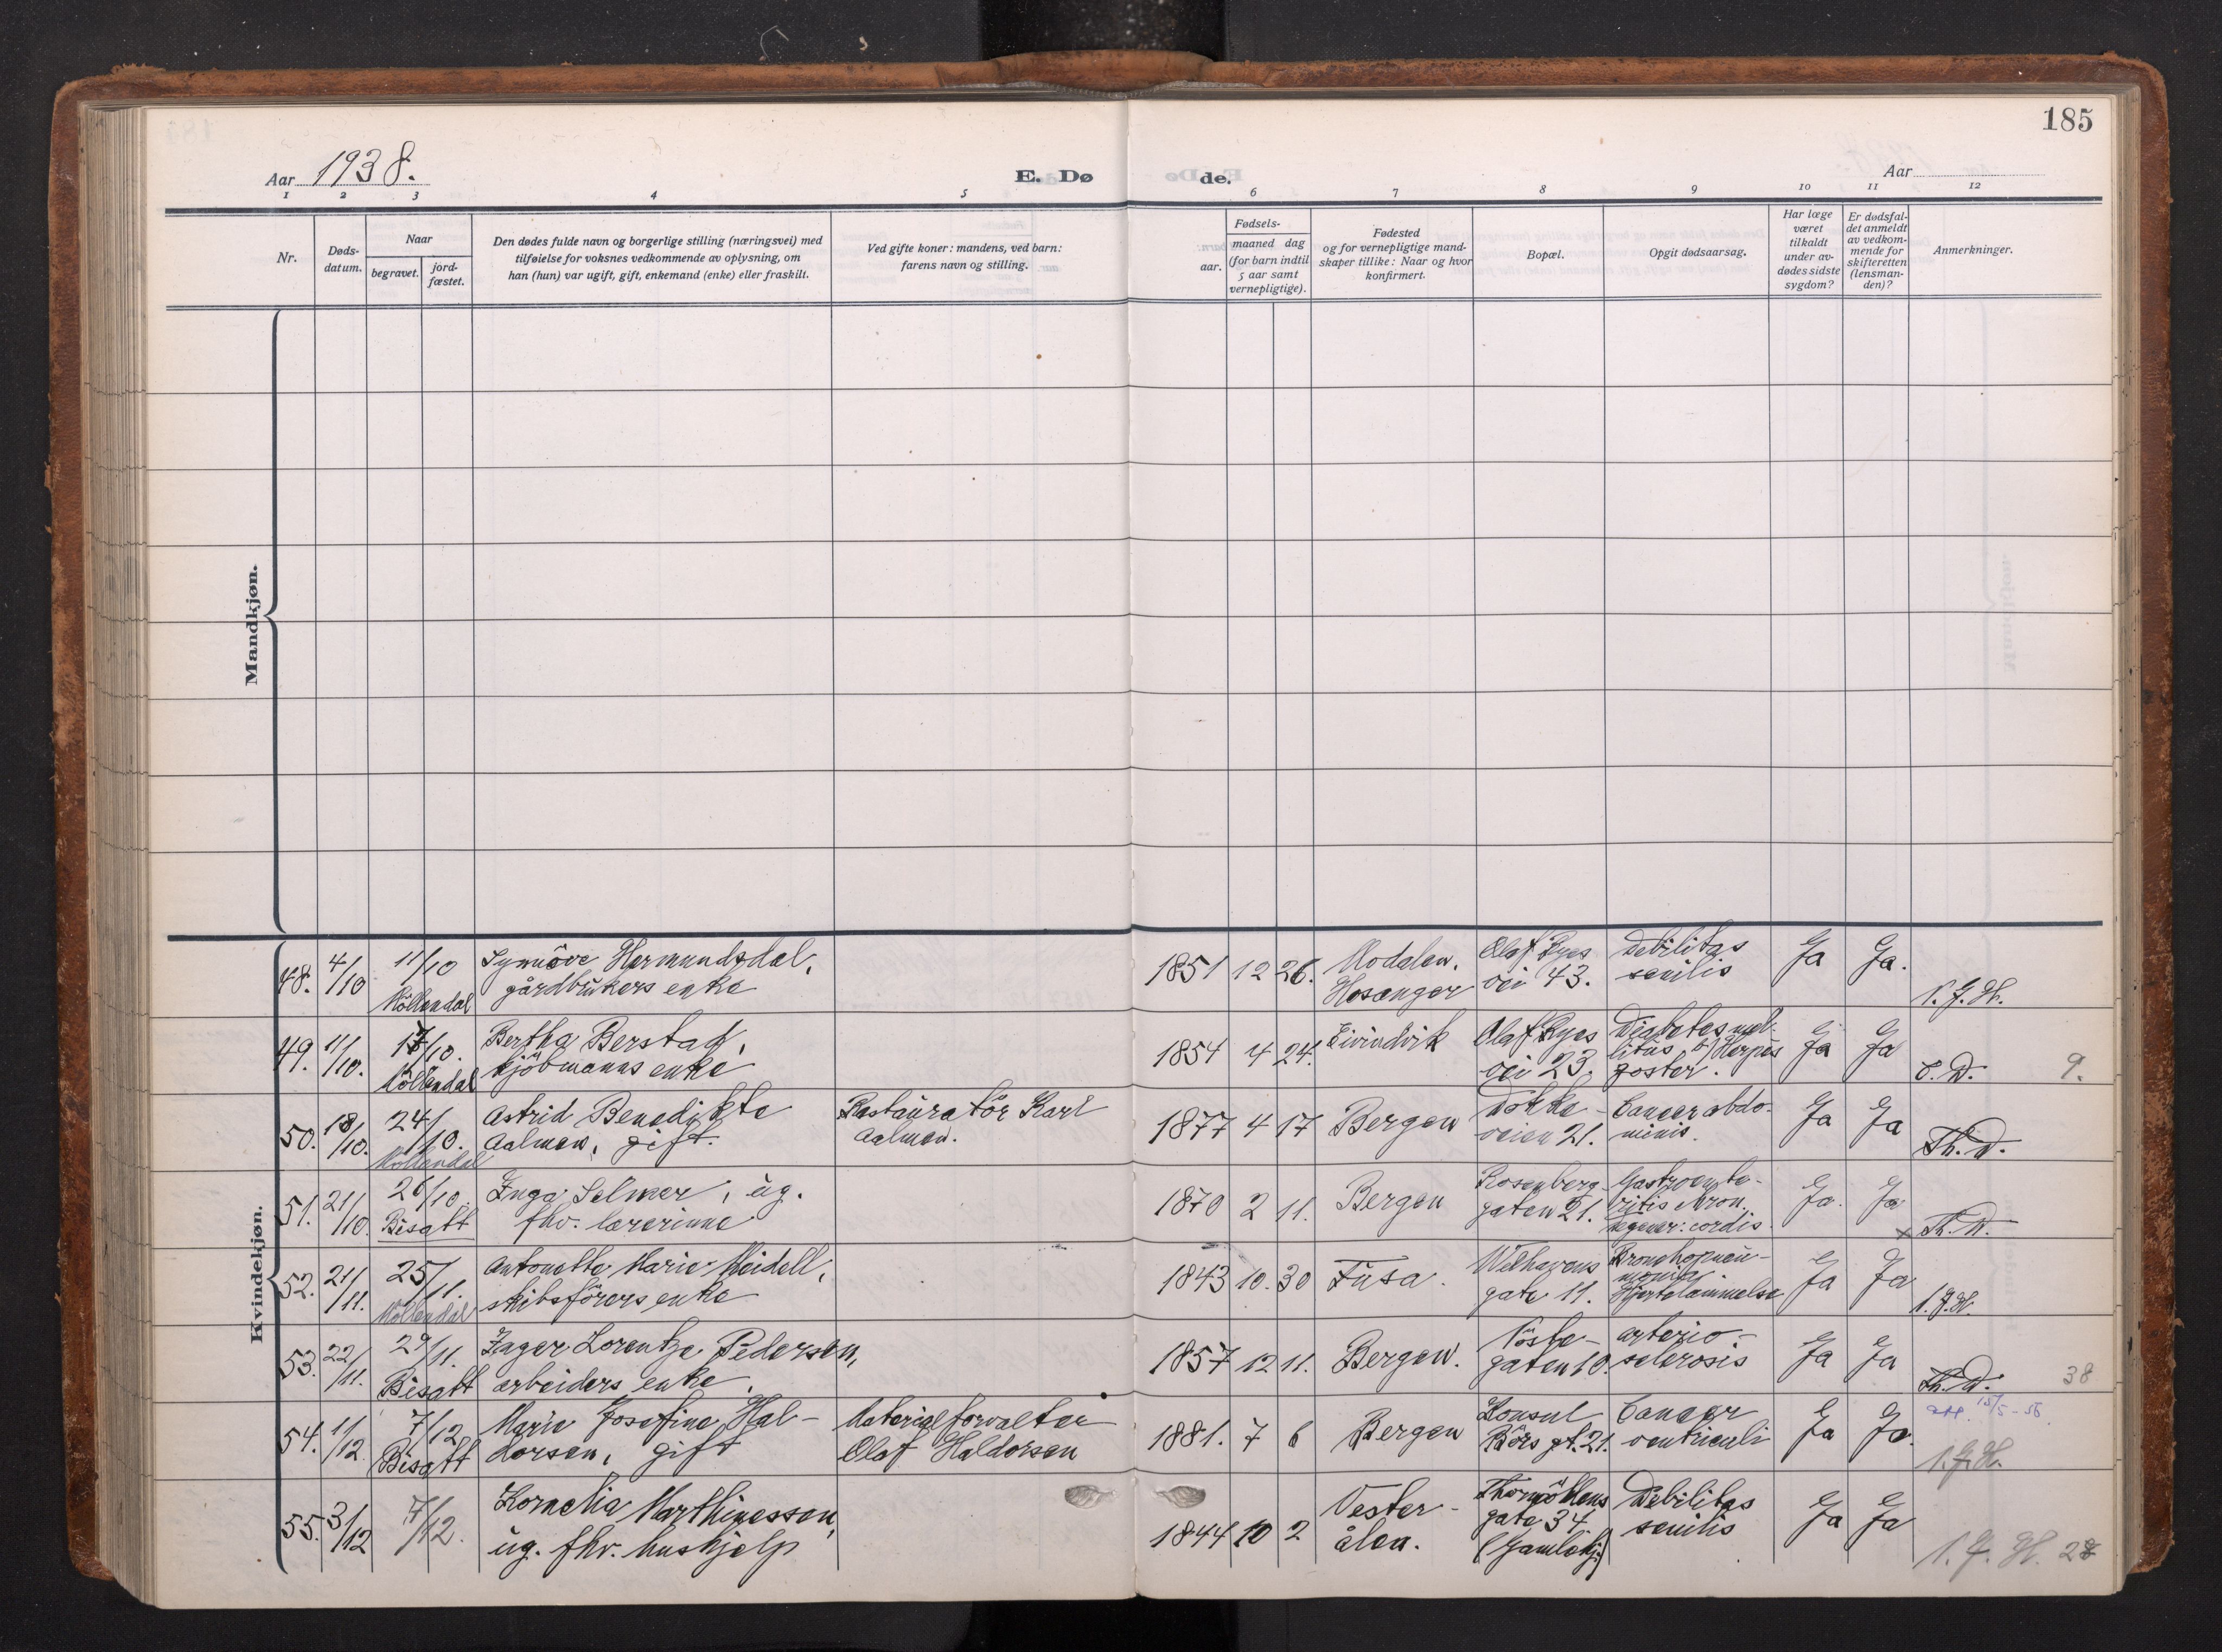 185
Aar 1938.
E. Dø
de.
Aar
1 2 3 4 5 6 7 8 9 10 11 12
Nr.
Døds-
datum.
Naar
begravet.
jord-
fæstet.
Den dødes fulde navn og borgerlige stilling (næringsvei) med
tilføielse for voksnes vedkommende av oplysning, om
han (hun) var ugift, gift, enkemand (enke) eller fraskilt.
Ved gifte koner: mandens, ved barn:
farens navn og stilling.
aar.
Fødsels-
maaned dag
(for barn indtil
5 aar samt
vernepligtige).
Fødested
og for vernepligtige mand-
skaper tillike: Naar og hvor
konfirmert.
Bopæl.
Opgit dødsaarsag.
Har læge
været
tilkaldt
under av-
dødes sidste
sygdom?
Er dødsfal-
det anmeldt
av vedkom-
mende for
skifteretten
(lensman-
den)?
Anmerkninger.
Mandkjøn.
Kvindekjøn.
48. 4/10 11/10 Møllendal
Synnöve Hermundsdal,
gårdbrukers enke
1851 12 26.
Modalen,
Hosanger
Olaf Ryes
vei 43.
Debilitas
senilis
Ja Ja.
49. 11/10. 17/10. Møllendal
Bertha Berstad,
kjöbmanns enke
1854 4 24.
Eivindvik
Olaf Ryes
vei 23.
Diabetes mel-
litus, b) Herpes
zoster.
Ja Ja
9.
50. 18/10. 24/10. Møllendal
Astrid Benedikte
Aalmen, gift.
Restauratör Karl
Aalmen.
1877 4 17
Bergen
Dokke-
veien 21.
Cancer abdo-
minis.
Ja Ja
Th. D.
51. 21/10. 26/10. Bisatt
Inga Selmer, ug.
fhv. lærerinne
1870 2 11.
Bergen
Rosenberg-
gaten 21.
Gastroente-
ritis kron.
Degener: cordis.
Ja. Ja
x Th. D.
52. 21/11. 25/11. Møllendal
Antonette Marie Meidell,
skibsförers enke
1843 10. 30
Fusa.
Welhavens
gate 11.
Bronchopneu-
monia
Hjertelammelse
Ja Ja
53. 22/11. 29/11. Bisatt
Inger Lorentze Pedersen,
arbeiders enke.
1857 12 11.
Bergen.
Nöste-
gaten 10.
Arterio-
sclerosis
Ja Ja
Th. D.
38
54. 1/12. 7/12 Bisatt
Marie Josefine Hal-
dorsen, gift
Materialforvalter
Olaf Haldorsen
1881. 7 6
Bergen
Konsul
Börs gt. 21.
Cancer
ventriculi
Ja Ja.
att. 15/5-56.
55. 3/12 7/12.
Kornelia Marthinessen,
ug. fhv. hushjelp
1844 10 2
Vester-
ålen.
Thormöhlens
gate 34.
(Gamlehj.)
Debilitas
senilis
Ja Ja
28